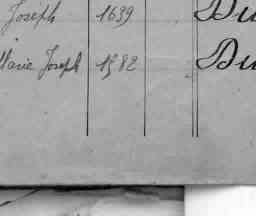 Joseph 1639 Du
Marie Joseph 1582 Du